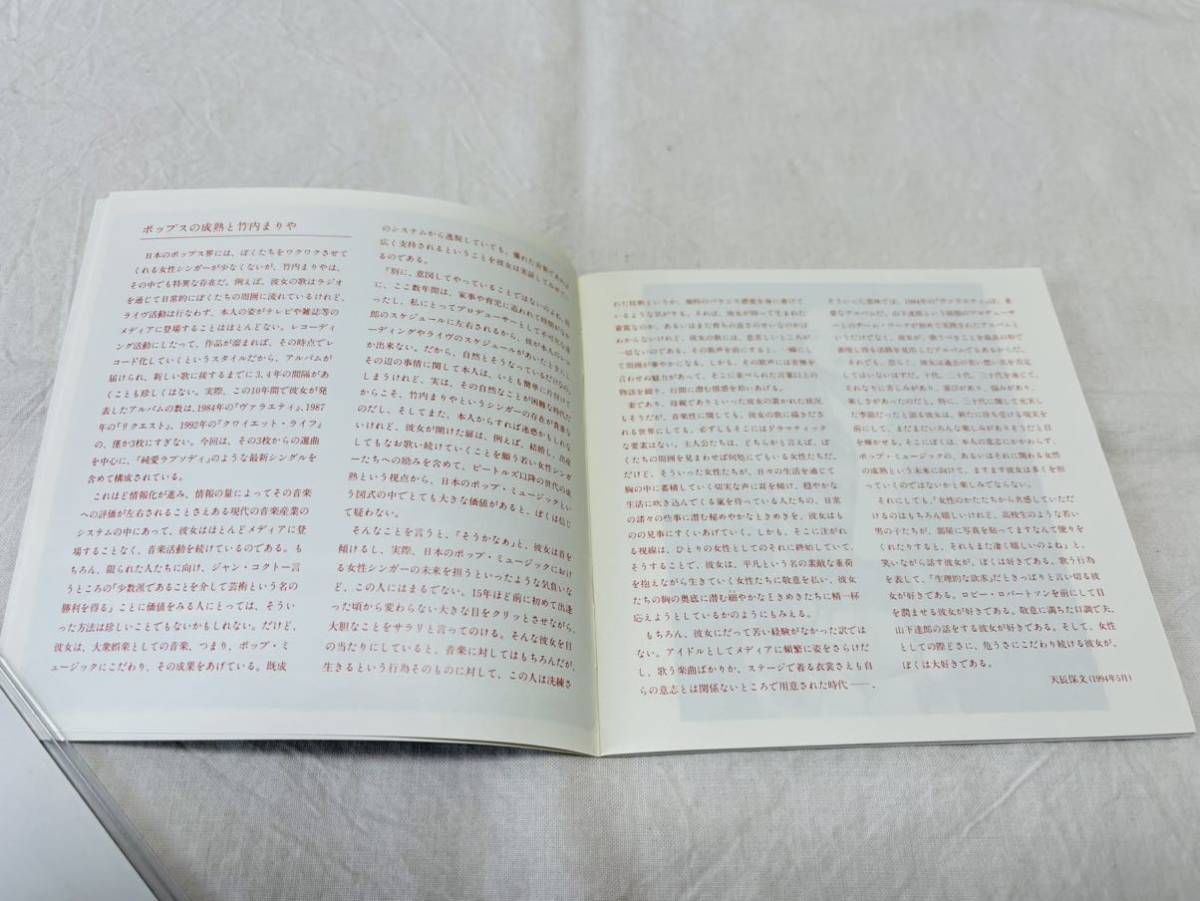 ポップスの成熟と竹内まりや
日本のポップス界には、ぼくたちをワクワクさせて
くれる女性シンガーが少なくないが、竹内まりやは、
その中でも特異な存在だ。例えば、彼女の歌はラジオ
を通じて日常的にぼくたちの周囲に流れているけれど、
ライヴ活動は行なわず、本人の姿がテレビや雑誌等の
メディアに登場することはほとんどない。レコーディ
ング活動にしたって、作品が溜まれば、その時点でレ
コード化していくというスタイルだから、アルバムが
届けられ、新しい歌に接するまでに3、4年の間隔があ
くことも珍しくはない。実際、この10年間で彼女が発
表したアルバムの数は、1984年の『ヴァラエティ』、1987
年の『リクエスト』、1992年の『クワイエット・ライフ』
の、僅か3枚にすぎない。今回は、その3枚からの選曲
を中心に、『純愛ラプソディ』のような最新シングルを
含めて構成されている。
これほど情報化が進み、情報の量によってその音楽
への評価が左右されることさえある現代の音楽産業の
システムの中にあって、彼女はほとんどメディアに登
場することなく、音楽活動を続けているのである。も
ちろん、限られた人たちに向け、ジャン・コクトー言
うところの「少数派であることを介して芸術という名の
勝利を得る」ことに価値をみる人にとっては、そうい
った方法は珍しいことでもないかもしれない。だけど、
彼女は、大衆娯楽としての音楽、つまり、ポップ・ミ
ュージックにこだわり、その成果をあげている。既成
のシステムから逸脱していても、優れた音楽であれば
広く支持されるということを彼女は実証してみせてい
るのである。
「別に、意図してやっていることではないのよね。
に、ここ数年間は、家事や育児に追われて時間がなか
ったし、私にとってプロデューサーとしての
郎のスケジュールに左右されるから、彼が本人のレコ
ーディングやライヴのスケジュールがあいたときにし
か出来ない。だから、自然とそうなっているだけなの」。
その辺の事情に関して本人は、いとも簡単に片付けて
しまうけれど、実は、その自然なことが困難な時代だ
からこそ、竹内まりやというシンガーの存在が貴重な
のだし、そしてまた、本人からすれば迷惑かもしれな
いけれど、彼女が開けた扉は、例えば、結婚し、出産
してもなお歌い続けていくことを願う若い女性シンガ
ーたちへの励みを含めて、ビートルズ以降の世代の成
熟という視点から、日本のポップ・ミュージックとい
う図式の中でとても大きな価値があると、ぼくは信じ
て疑わない。
そんなことを言うと、「そうかなあ」と、彼女は首を
傾けるし、実際、日本のポップ・ミュージックにおけ
る女性シンガーの未来を担うといったような気負いな
ど、この人にはまるでない。15年ほど前に初めて出逢
った頃から変わらない大きな目をクリッとさせながら、
大胆なことをサラリと言ってのける。そんな彼女を目
の当たりにしていると、音楽に対してはもちろんだが、
生きるという行為そのものに対して、この人は洗練さ
れた技術というか、独特のバランス感覚を身に着けて
いるような気がする。それは、彼女が持って生まれた
資質なのか、あるいはまだ教養の成さのせいなのかは
わからないけれど、彼女の歌には、悲哀しいところが
一切ないのである。その歌声を前にすると、一瞬にし
て周囲が華やかになる。しかも、その歌声には言葉を
言わせぬ魅力があって、そこに並べられた言葉以上の
物語を綴り、行間に潜む情感を拾いあげる。
妻であり、母親でありといった彼女の置かれた状況
もそうだが、音楽性に関しても、彼女の歌に描きださ
れる世界にしても、必ずしもそこにはドラマティック
な要素はない。主人公たちは、どちらかと言えば、ぼ
くたちの周囲を見まわせば何処にでもいる女性たちだ。
だけど、そういった女性たちが、日々の生活を通じて
胸の中に蓄積していく切実な声に耳を傾け、穏やかな
生活に吹き込んでくる嵐を待っている人たちの、日常
の諸々の些事に潜む秘めやかなときめきを、彼女はも
のの見事にすくいあげていく。しかも、そこに注がれ
る視線は、ひとりの女性としてのそれに終始していて、
そうすることで、彼女は、平凡という名の素敵な重荷
を抱えながら生きていく女性たちに敬意を払い、彼女
たちの胸の奥底に潜む細やかなときめきたちに精一杯
応えようとしているかのようにもみえる。
もちろん、彼女にだって苦い経験がなかった訳では
ない。アイドルとしてメディアに頻繁に姿をさらけだ
し、歌う楽曲ばかりか、ステージで着る衣裳さえも自
らの意志とは関係ないところで用意された時代――、
そういった意味では、1984年の『ヴァラエティ』は、重
要なアルバムだ。山下達郎という屈指のプロデューサ
ーとのチーム・ワークが初めて実践されたアルバムと
いうだけでなく、彼女が、歌うべきことを
表現し得る活路を見出したアルバムでもあるからだ。
それでも、恐らく、彼女は過去の苦い想い出を否定
してはいないはずだ。十代、二十代、三十代を通じて、
それなりに苦しみがあり、葛藤があり、悩みがあり、
楽しさがあったのだと。特に、三十代に関して充実し
た季節だったと語る彼女は、新たに待ち受ける現実を
前にして、まだまだいろんな楽しみがありそうだと目
を輝かせる。そこにぼくは、本人の意志にかかわらず、
ポップ・ミュージックの、あるいはそれに関わる女性
の成熟という未来に向けて、ますます彼女は多くを担
っていくのではないかと楽しみでならない。
それにしても、「女性のかたたちから共感していただ
けるのはもちろん嬉しいけれど、高校生のような若い
男の子たちが、部屋に写真を貼ってますなんて便りを
くれたりすると、それもまた凄く嬉しいのよね」と、
笑いながら話す彼女が、ぼくは好きである。歌う行為
を表して、「生理的な欲求」だときっぱりと言い切る彼
女が好きである。ロビー・ロバートソンを前にして目
を潤ませる彼女が好きである。敬意に満ちた口調で夫、
山下達郎の話をする彼女が好きである。そして、女性
としての際どさに、危うさにこだわり続ける彼女が、
ぼくは大好きである。
天辰保文(1994年5月)